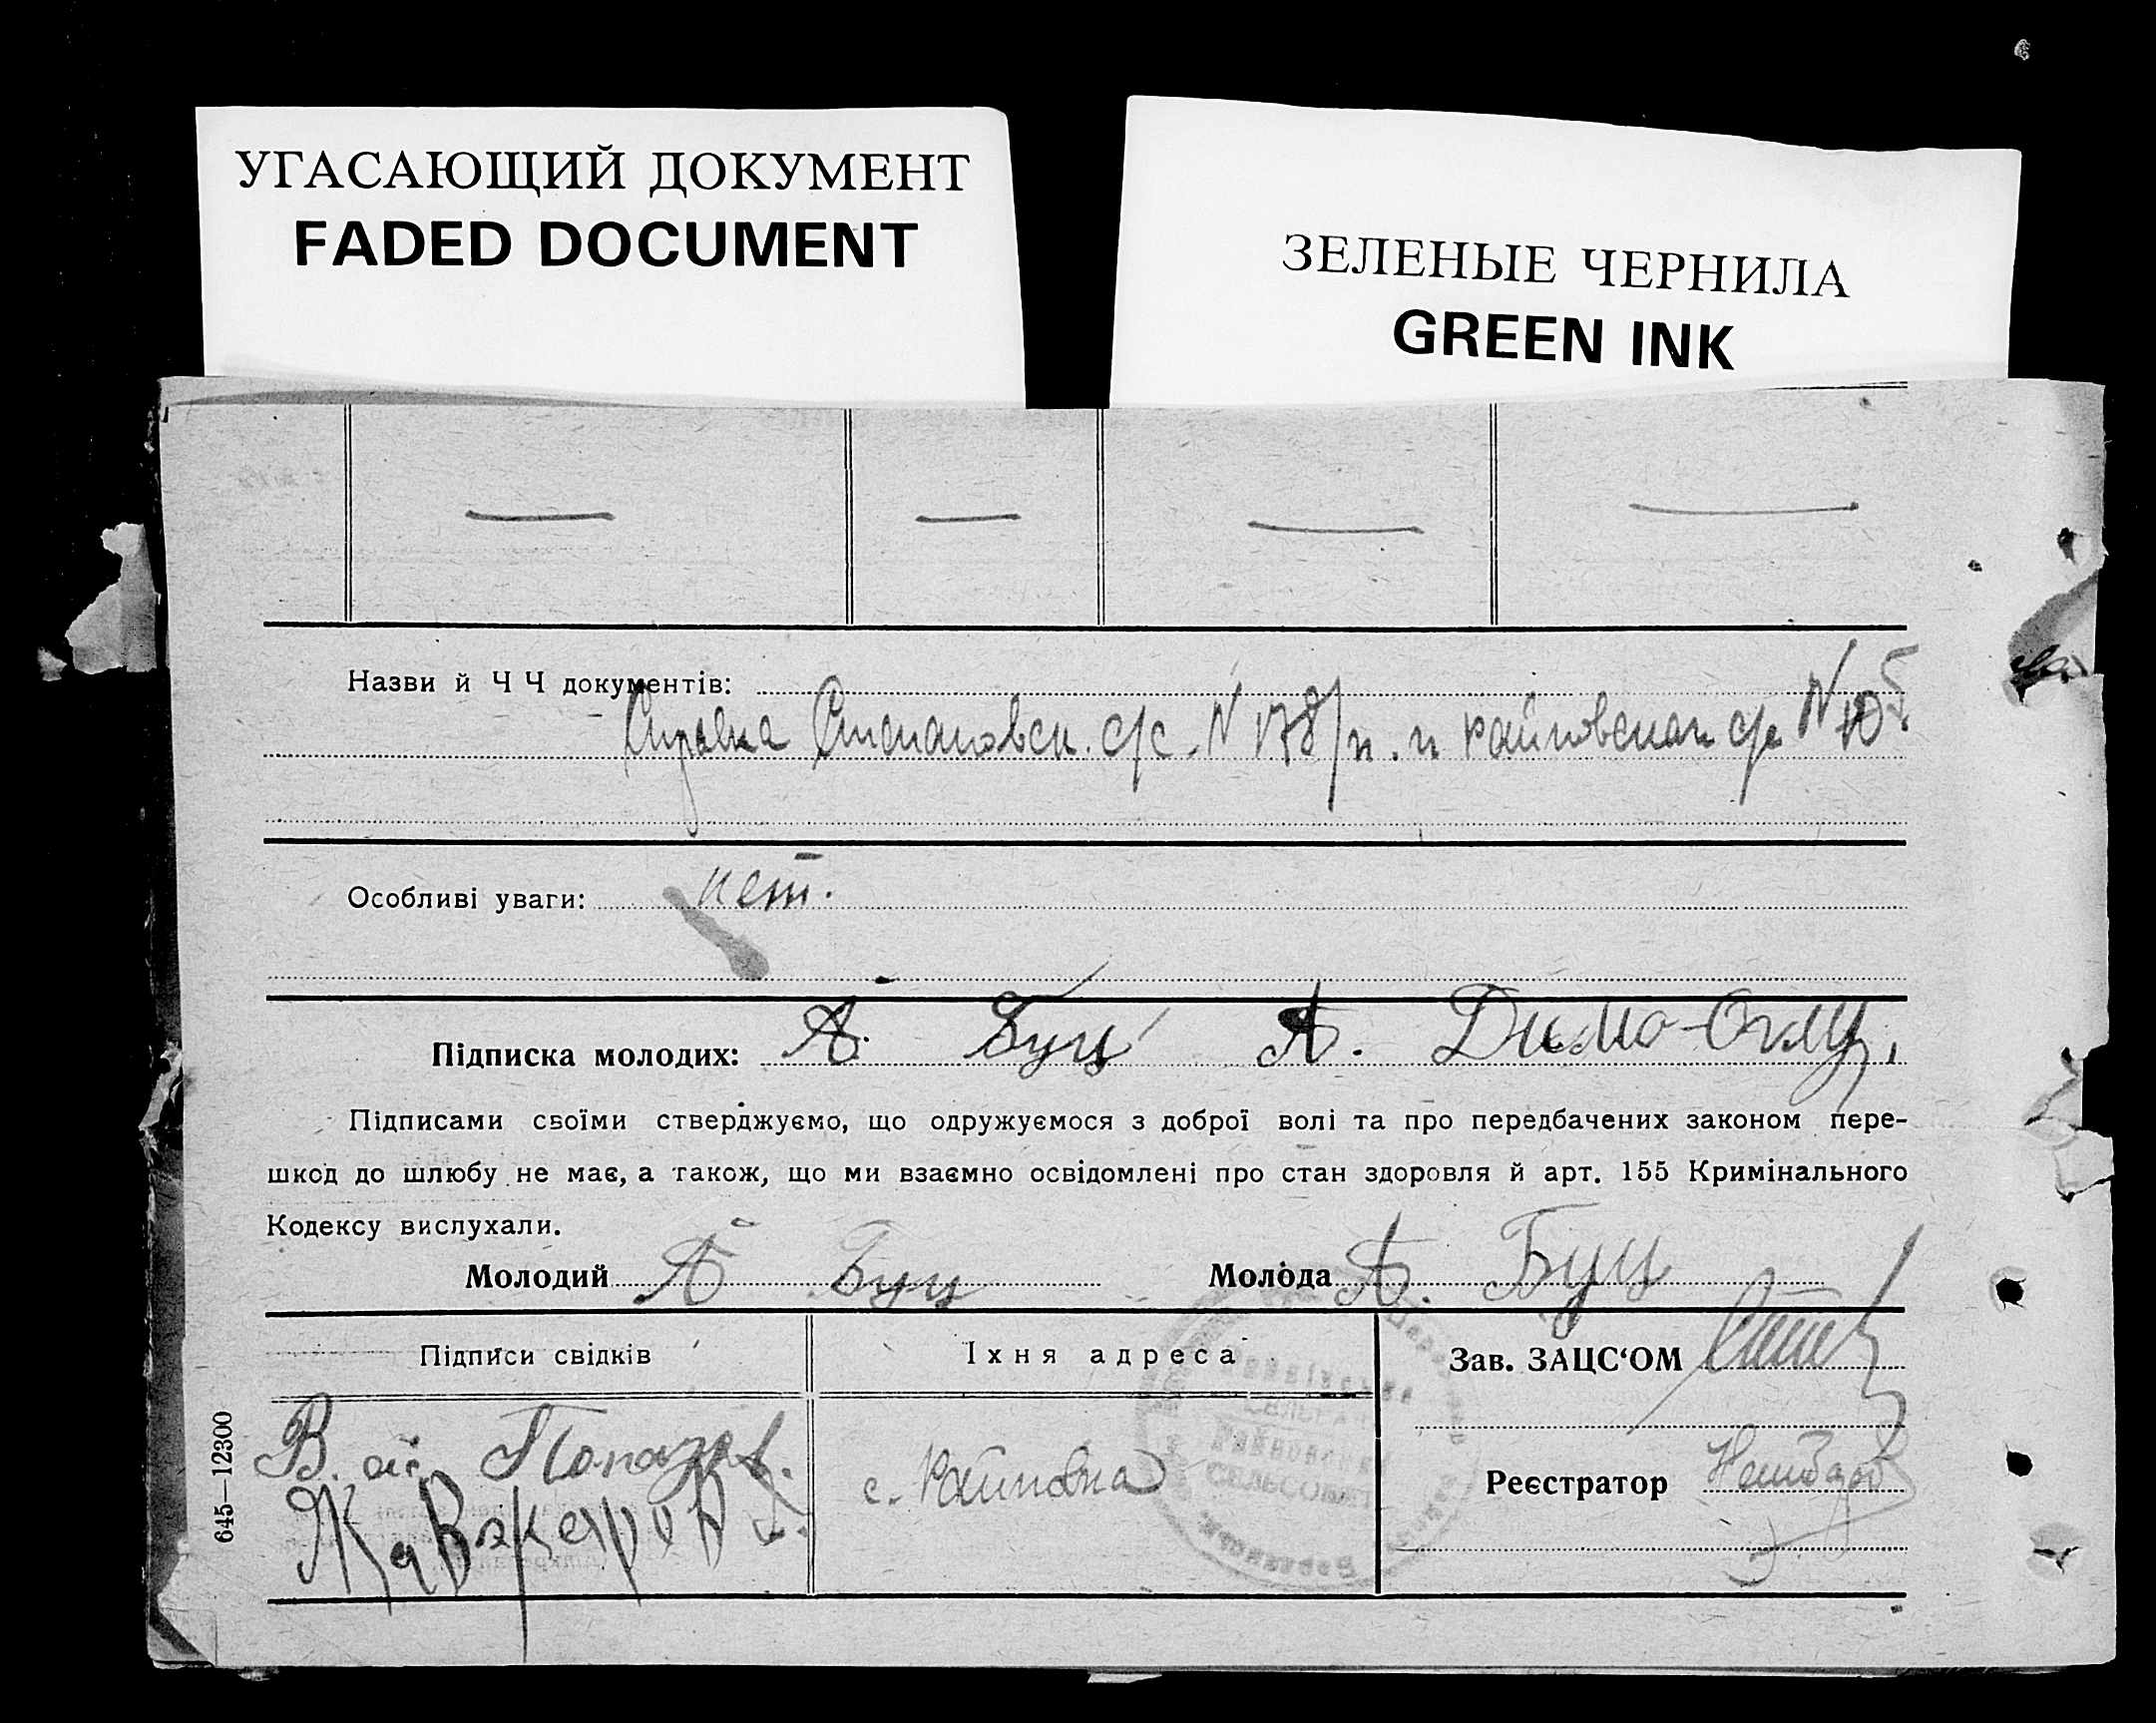 УГАСАЮЩИЙ ДОКУМЕНТ
FADED DOCUMENT
ЗЕЛЕНЫЕ ЧЕРНИЛА
GREEN INK
Назви й ЧЧ документів:
Справка Степановск. с/с. N 178/п. и Райновская с/с N 10
Особливі уваги: нет.
Підписка молодих: А. Буц А. Димо-Оглу,
Підписами своїми стверджуємо, що одружуємося з доброї волі та про передбачених законом пере-
шкод до шлюбу не має, а також, що ми взаємно освідомлені про стан здоровля й арт. 155 Кримінального
Кодексу вислухали.
Молодий А Буц Молода А. Буц
Підписи свідків Їхня адреса Зав. ЗАЦС‘ОМ
В.
с. Райновка
Реєстратор
СЕЛЬСОВЕТ
645—12300